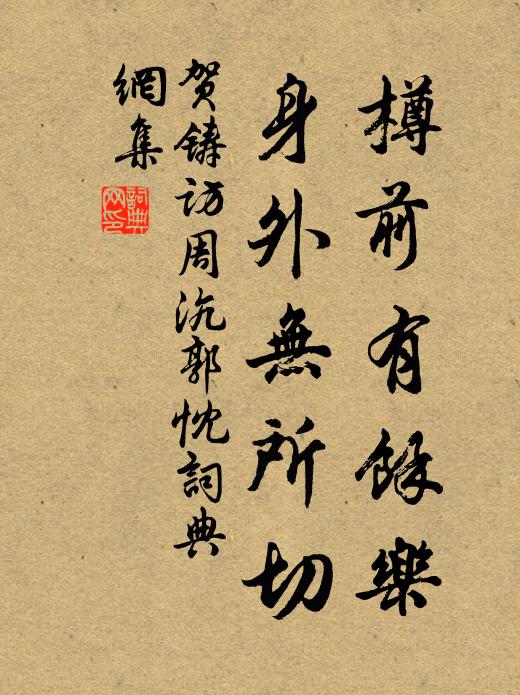 樽前有餘樂
身外無所切
贺鑄访周沆郭忱詞典
網集
詞典
网印